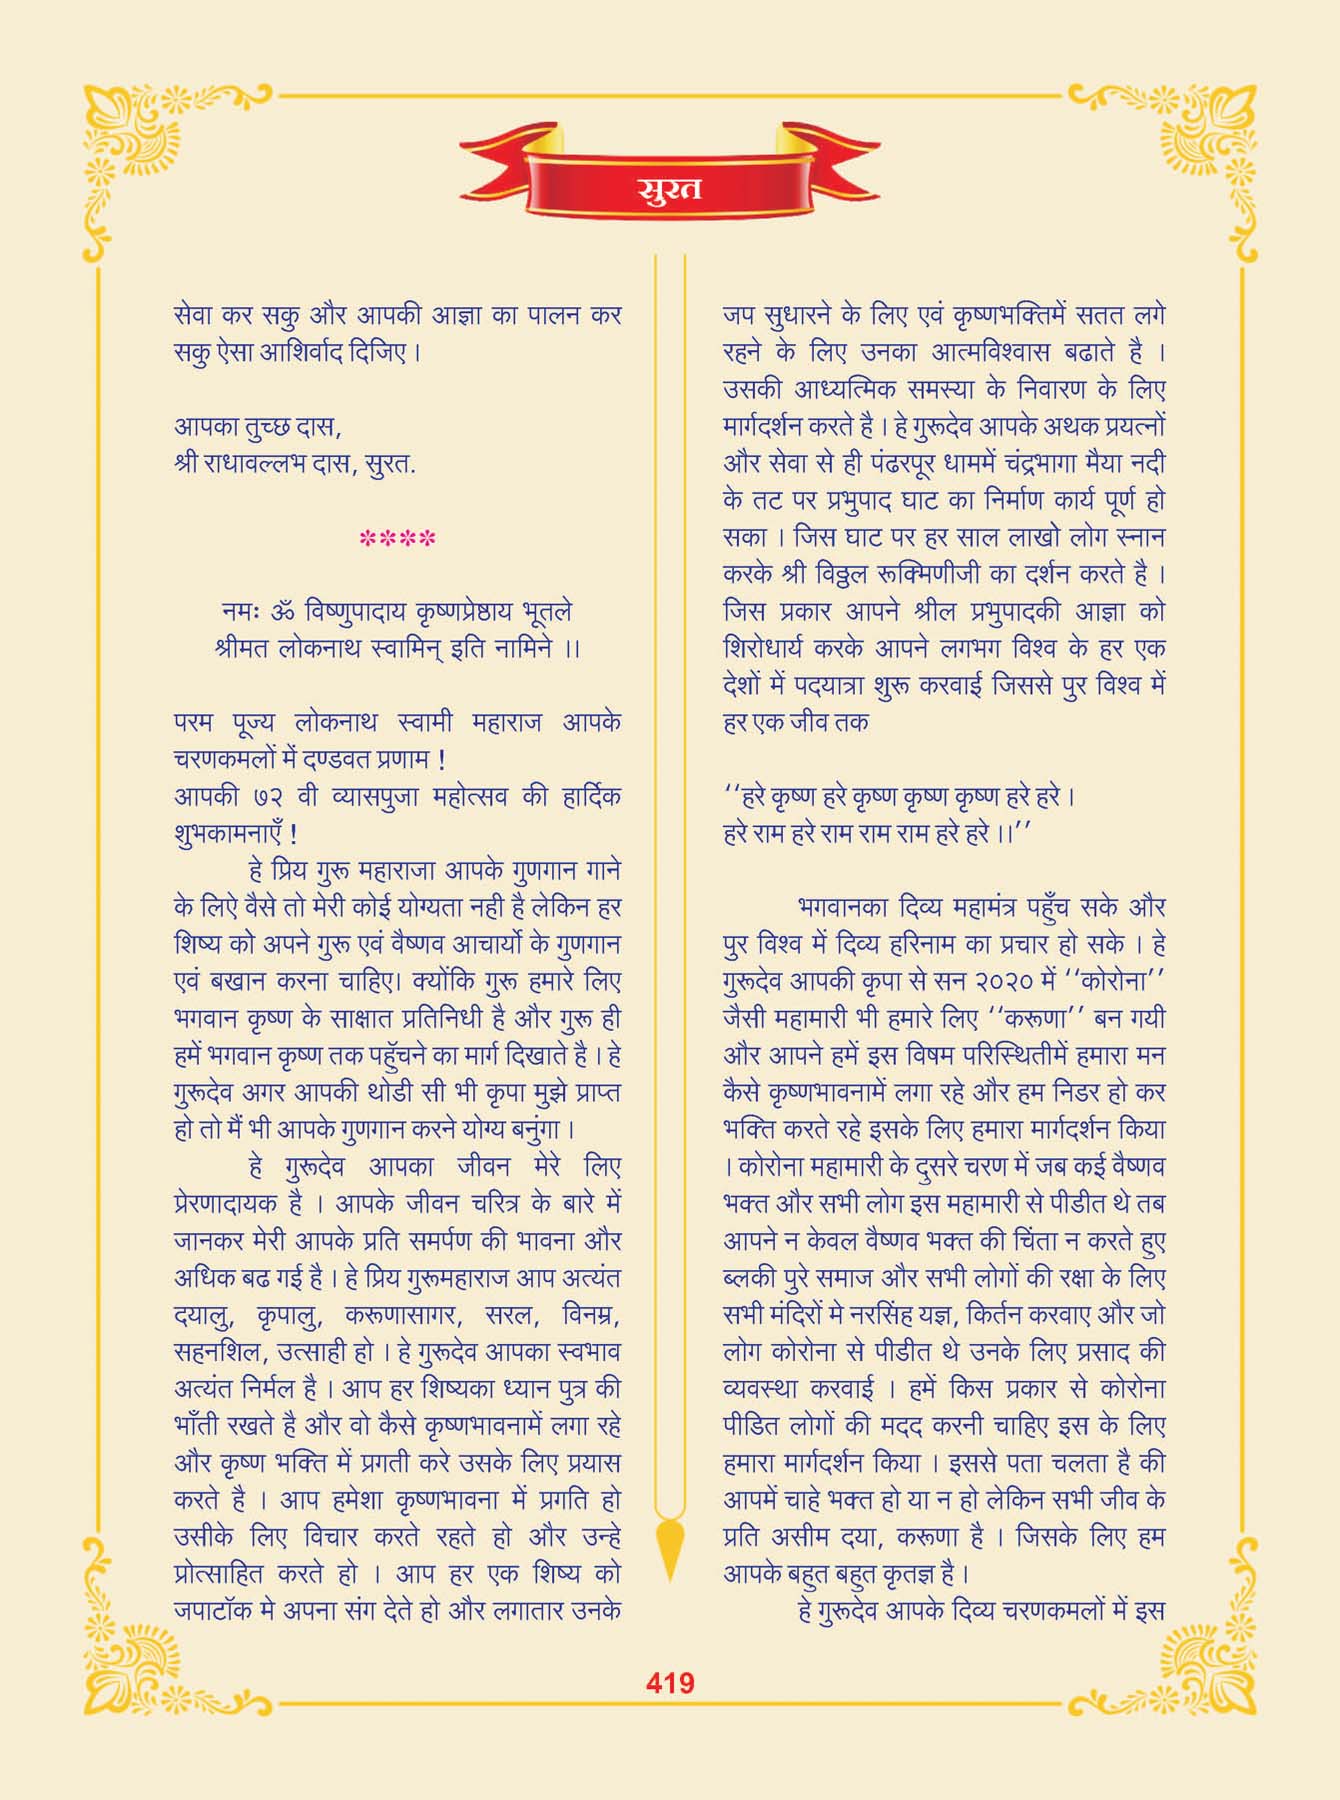 सुरत
सेवा कर सकु और आपकी आज्ञा का पालन कर
सकु ऐसा आशिर्वाद दिजिए ।
आपका तुच्छ दास,
श्री राधावल्लभ दास, सुरत.
****
नमः ॐ विष्णुपादाय कृष्णप्रेष्ठाय भूतले
श्रीमत लोकनाथ स्वामिन् इति नामिने ।।
परम पूज्य लोकनाथ स्वामी महाराज आपके
चरणकमलों में दण्डवत प्रणाम !
आपकी ७२ वी व्यासपुजा महोत्सव की हार्दिक
शुभकामनाएँ !
हे प्रिय गुरू महाराजा आपके गुणगान गाने
के लिऐ वैसे तो मेरी कोई योग्यता नही है लेकिन हर
शिष्य को अपने गुरू एवं वैष्णव आचार्यो के गुणगान
एवं बखान करना चाहिए। क्योंकि गुरू हमारे लिए
भगवान कृष्ण के साक्षात प्रतिनिधी है और गुरू ही
हमें भगवान कृष्ण तक पहुॅचने का मार्ग दिखाते है । हे
गुरूदेव अगर आपकी थोडी सी भी कृपा मुझे प्राप्त
हो तो मैं भी आपके गुणगान करने योग्य बनुंगा ।
हे गुरूदेव आपका जीवन मेरे लिए
प्रेरणादायक है । आपके जीवन चरित्र के बारे में
जानकर मेरी आपके प्रति समर्पण की भावना और
अधिक बढ गई है । हे प्रिय गुरूमहाराज आप अत्यंत
दयालु, कृपालु, करूणासागर, सरल, विनम्र,
सहनशिल, उत्साही हो । हे गुरूदेव आपका स्वभाव
अत्यंत निर्मल है । आप हर शिष्यका ध्यान पुत्र की
भाँती रखते है और वो कैसे कृष्णभावनामें लगा रहे
और कृष्ण भक्ति में प्रगती करे उसके लिए प्रयास
करते है । आप हमेशा कृष्णभावना में प्रगति हो
उसीके लिए विचार करते रहते हो और उन्हे
प्रोत्साहित करते हो । आप हर एक शिष्य को
जपाटॉक मे अपना संग देते हो और लगातार उनके
जप सुधारने के लिए एवं कृष्णभक्तिमें सतत लगे
रहने के लिए उनका आत्मविश्वास बढाते है ।
उसकी आध्यत्मिक समस्या के निवारण के लिए
मार्गदर्शन करते है । हे गुरूदेव आपके अथक प्रयत्नों
और सेवा से ही पंढरपूर धाममें चंद्रभागा मैया नदी
के तट पर प्रभुपाद घाट का निर्माण कार्य पूर्ण हो
सका । जिस घाट पर हर साल लाखोे लोग स्नान
करके श्री विठ्ठल रूक्मिणीजी का दर्शन करते है ।
जिस प्रकार आपने श्रील प्रभुपादकी आज्ञा को
शिरोधार्य करके आपने लगभग विश्व के हर एक
देशों में पदयात्रा शुरू करवाई जिससे पुर विश्व में
हर एक जीव तक
‘‘हरे कृष्ण हरे कृष्ण कृष्ण कृष्ण हरे हरे ।
हरे राम हरे राम राम राम हरे हरे ।।’’
भगवानका दिव्य महामंत्र पहुँच सके और
पुर विश्व में दिव्य हरिनाम का प्रचार हो सके । हे
गुरूदेव आपकी कृपा से सन २०२० में ‘‘कोरोना’’
जैसी महामारी भी हमारे लिए ‘‘करूणा’’ बन गयी
और आपने हमें इस विषम परिस्थितीमें हमारा मन
कैसे कृष्णभावनामें लगा रहे और हम निडर हो कर
भक्ति करते रहे इसके लिए हमारा मार्गदर्शन किया
। कोरोना महामारी के दुसरे चरण में जब कई वैष्णव
भक्त और सभी लोग इस महामारी से पीडीत थे तब
आपने न केवल वैष्णव भक्त की चिंता न करते हुए
ब्लकी पुरे समाज और सभी लोगों की रक्षा के लिए
सभी मंदिरों मे नरसिंह यज्ञ, किर्तन करवाए और जो
लोग कोरोना से पीडीत थे उनके लिए प्रसाद की
व्यवस्था करवाई । हमें किस प्रकार से कोरोना
पीडित लोगों की मदद करनी चाहिए इस के लिए
हमारा मार्गदर्शन किया । इससे पता चलता है की
आपमें चाहे भक्त हो या न हो लेकिन सभी जीव के
प्रति असीम दया, करूणा है । जिसके लिए हम
आपके बहुत बहुत कृतज्ञ है ।
हे गुरूदेव आपके दिव्य चरणकमलों में इस
419